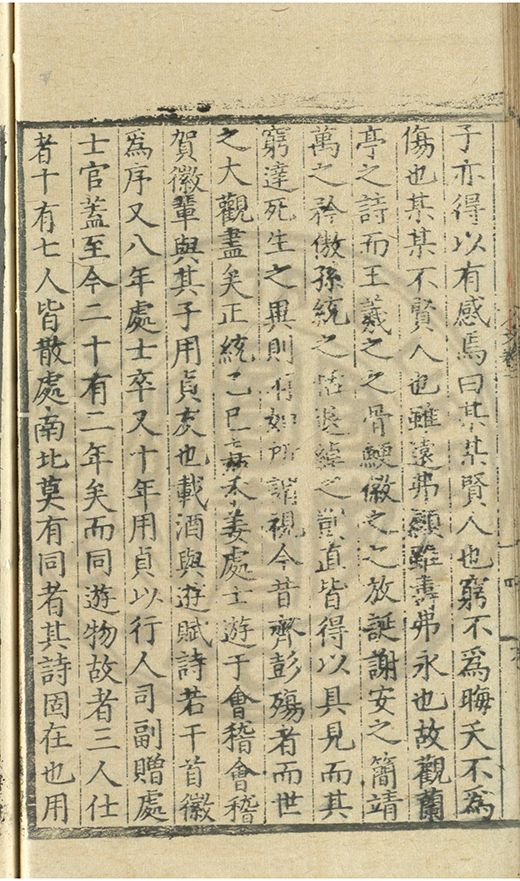 子亦得以有感焉曰某某賢人也窮不爲晦夭不爲
傷也某某不賢人也雖遠弗顯雖壽弗永也故觀蘭
亭之詩而王羲之之骨鯁徽之之放誕謝安之簡靖
萬之矜傲孫統之恬退綽之直皆得以具見而其
窮達死生之異則有如所謂視今昔齊彭殤者而世
之大觀盡矣正統己巳嘉禾姜處士遊于會稽會稽
賀徽輩與其子用貞友也載酒與遊賦詩若干首徽
爲序又八年處士卒又十年用貞以行人司副贈處
士官蓋至今二十有二年矣而同遊物故者三人仕
者十有七人皆散處南北莫有同者其詩固在也用